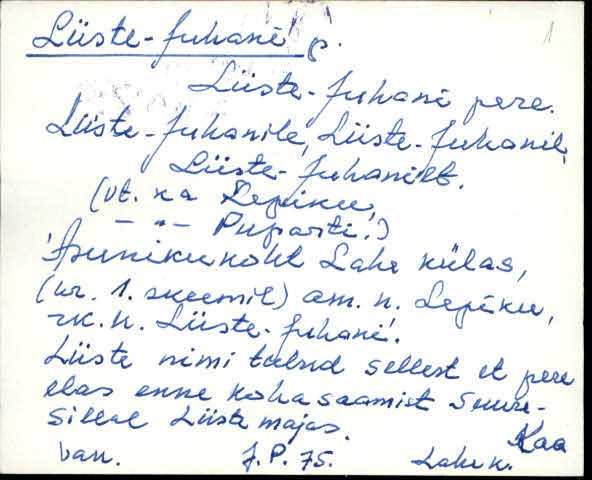 Lüste-Juhani p. 1
Lüste-Juhani pere.
Lüste-Juhanile, Lüste-Juhanil,
Lüste-Juhanilt.
(vt. ka Lepiku,
— " — Puparti.)
Asunikukoht Lahe külas,
(nr. 1. skeemil) am. n. Lepiku,
rk. n. Lüste-Juhani.
Lüste nimi tulnud sellest et pere
elas enne koha saamist Suure-
sillal Lüste majas.
Kaa
van. J.P. 75. Lahe k.